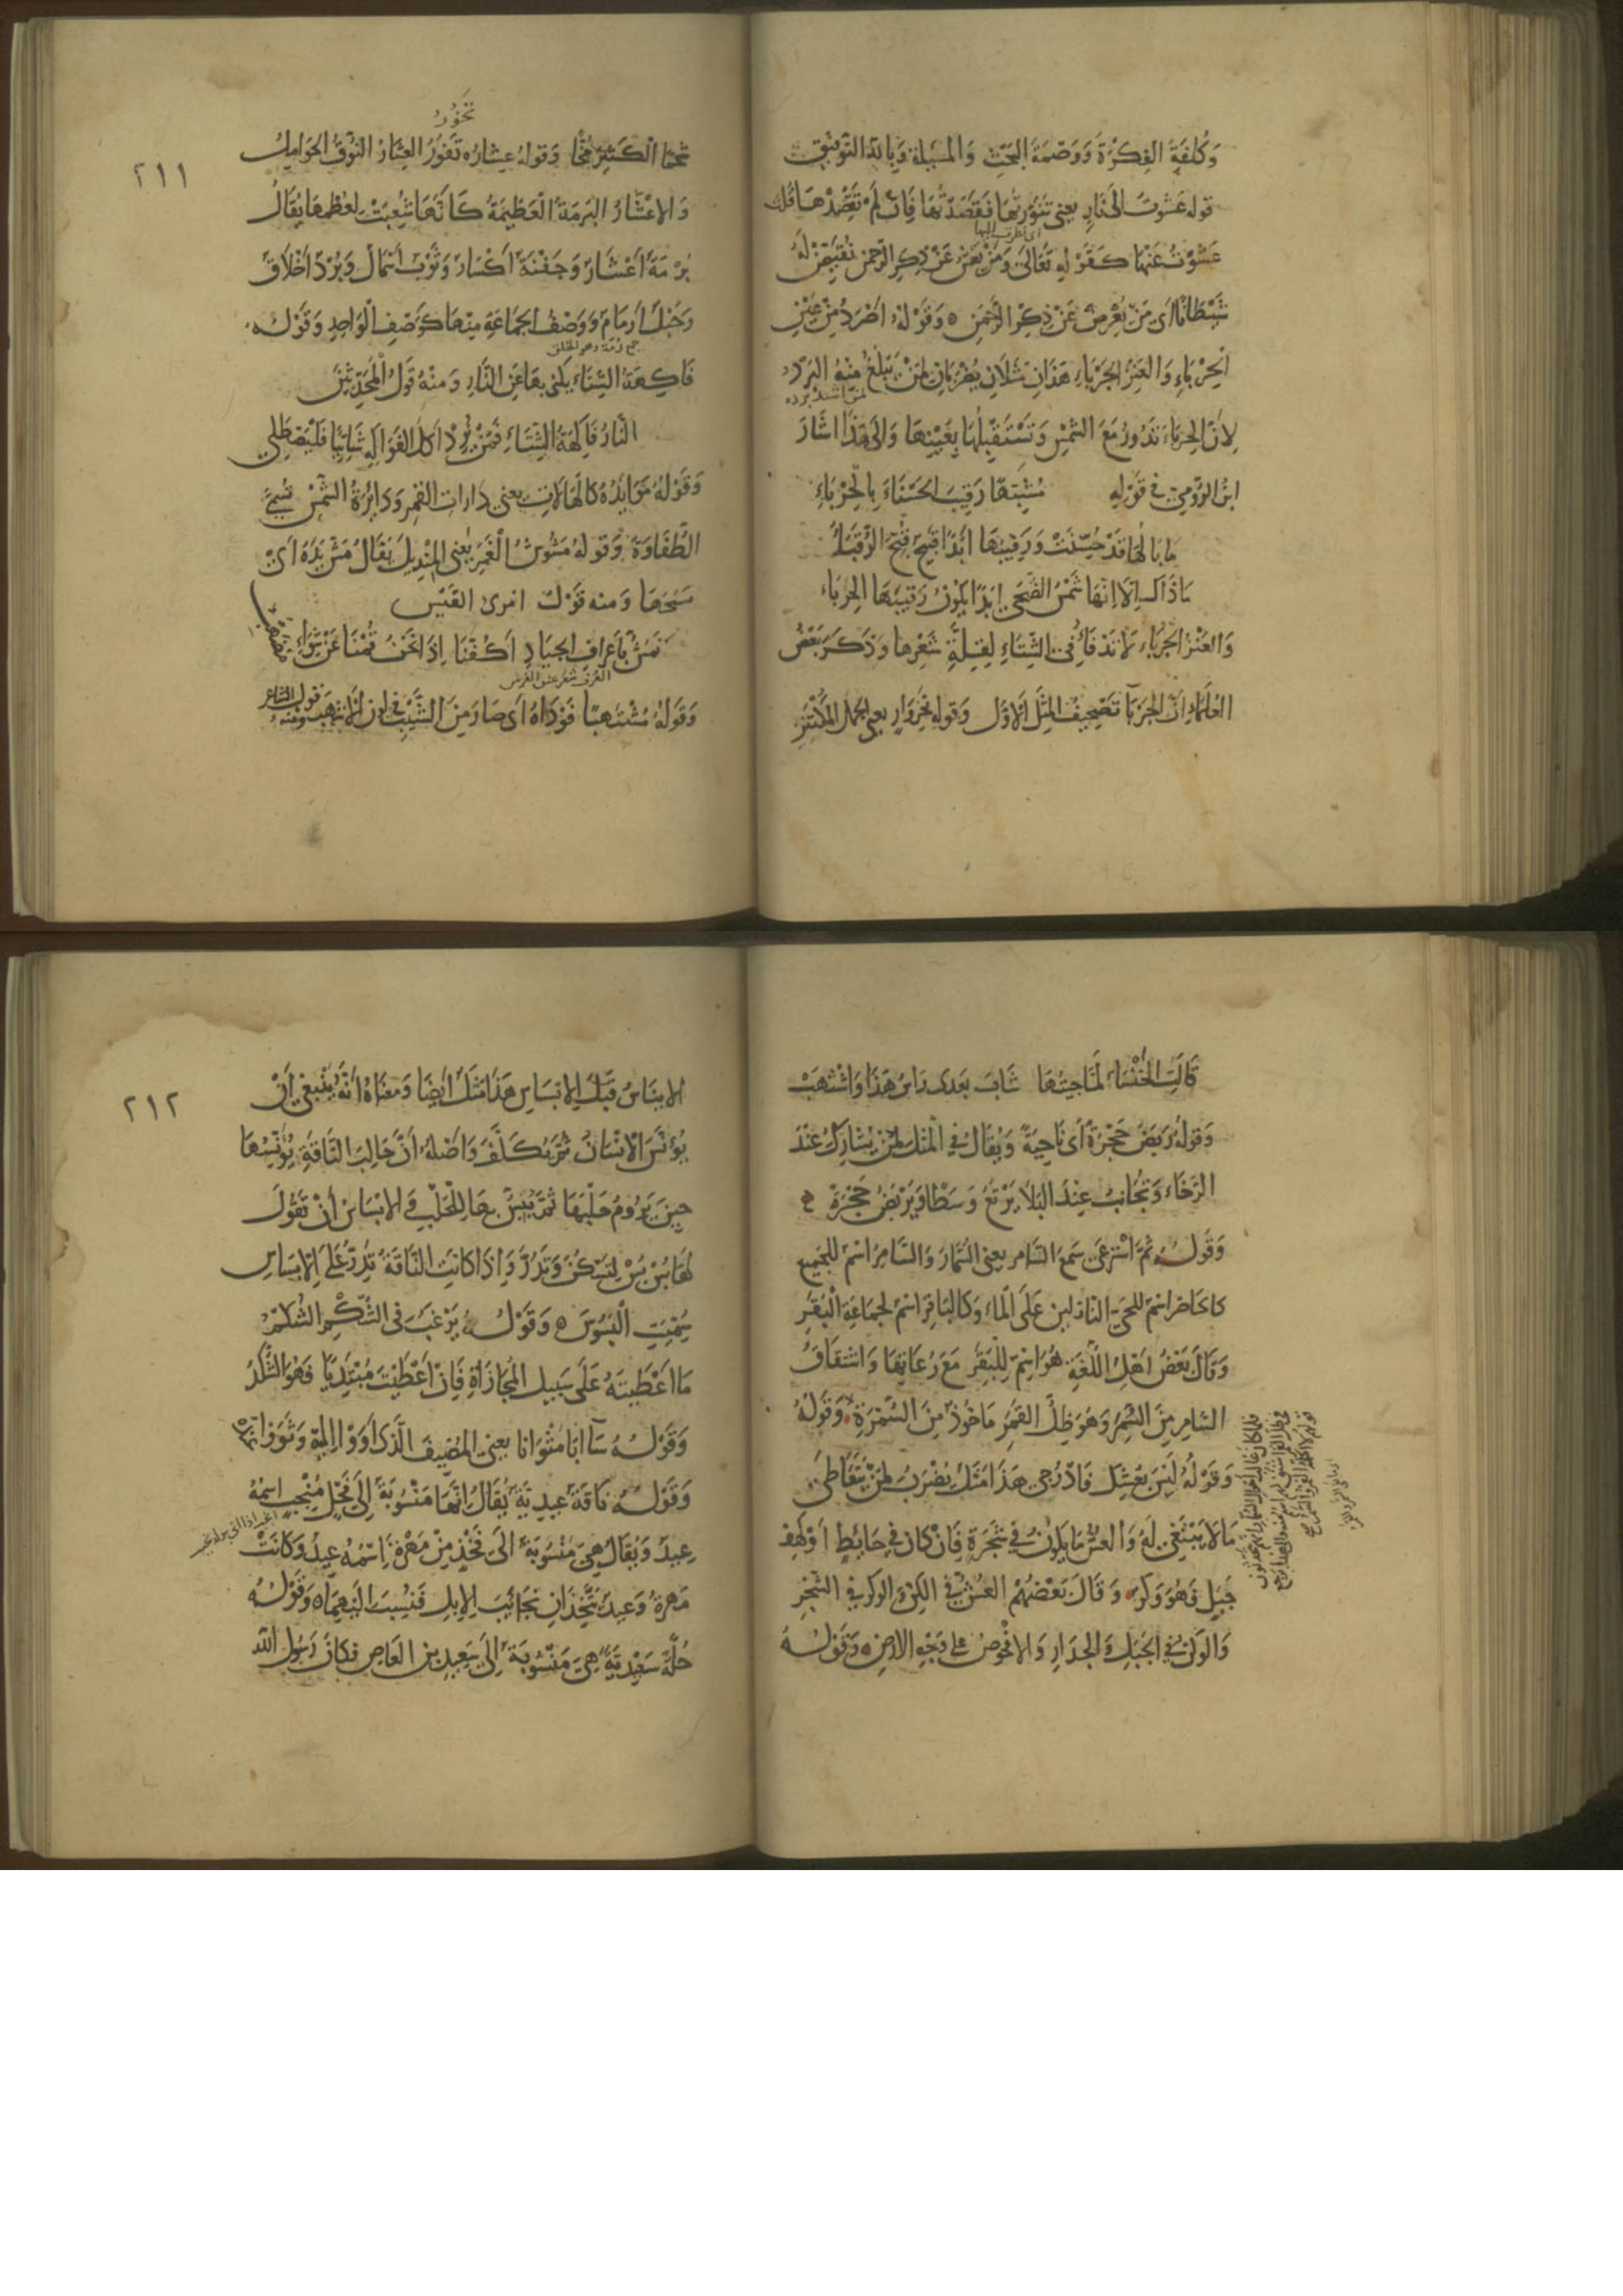 وَكُلفَةِ الفِكرَةِ وَوَصْمَةِ البَحْثِ وَالمَسْئلةِ وَبِاللهِ التَّوفِيقُ
قوله عَشَوتُ الى نَارٍ يعنى تَنَوَّرتُهَا فَقَصَدتُهَا فَاِن لَم تَقصِدْهَا قلت
اى نظرت اليها
عَشَوْتُ عَنْهَا كَقَوْلِهِ تَعَالىَ وَمَنْ يَعْشُ عَنْ ذِكرِ الرَّحمنِ نُقَيِّضْ لَهُ
شَيْطَانًا اى مَن يُعْرِضْ عَنْ ذِكرِ الرَّحمَنِ ه وَقَوْلُهُ اَصْرَدُ مِنْ عَيْنِ
الْحِرْبَاءِ وَالعَنْزِ الجَرْبَاءِ هَذَانِ مَثَلَانِ يُضْرَبَانِ لِمَنْ يَبْلُغُ مِنْهُ البَرْدُ
لمن اشتد برده
لِاَنَّ الحِرْبَاءَ تَدُورُ مَعَ الشَّمْسِ وَتَسْتَقْبِلُهَا بِعَيْنِهَا وَالىَ هَذَا اشَارَ
ابْنُ الرُّومِيِّ فى قَوْلِهِ مُشَبِّهًا رَقِيبَ الحَسْنَاءِ بِالحِرْبَاءِ
مَا بَالُهَا قَدْ حُسِّنَتْ وَرَقِيبُهَا ابَدًا قَبِيحٌ قُبِّحَ الرُّقَبَاءُ
مَا ذَاكَ اِلَّا اِنَّهَا شَمْسُ الضُّحَى ابَدًا يَكُونُ رَقِيبَهَا الحِرْبَاءُ
وَالعَنْزُ الجَرْبَاءُ لَا تَدْفَأُ فى الشِّتَاءِ لِقِلَّةِ شَعْرِهَا وَذَكَرَ بَعْضُ
العُلَمَاءِ اَنَّ الجَرْبَا تَصْحِيفُ المَثَلِ الاَوَّلِ وَقَولهُ نَحُرُ وَارٍ يعنى الجمل المُكْتَنِزُ
٢١١
تَخُورُ
شَحْمًا الكَثِيرُ مُخًّا وَقولهُ عِشَارُه تَفُورُ العِشَارُ النُّوقُ الحَوَامِلُ
وَالاَعْشَارُ البُرمَةُ العَظِيمَةُ كَاَنَّهَا شُعِبَتْ لِعُظْمِهَا يُقَالُ
بُرْمَةٌ اَعْشَارٌ وَجَفْنَةٌ اَكسَارٌ وَثَوْبٌ اَسْمَالٌ وَبُرْدٌ اَخْلَاقٌ
وَحَبْلٌ اَرمَامٌ وَوَصْفُ الجمَاعَةِ مِنْهَا كَوَصْفِ الوَاحِدِ وَقَوْلُهُ
جمع رمة وهو الخلق
فَاكِهَةُ الشِّتَاءِ يَكنى بهَا عَنِ النَّارِ وَمنْهُ قَولُ المُحَدِثِينَ
النَّارُ فَاكِهَةُ الشِّتَاءِ فَمَنْ يُرِدْ اَكلَ الفَوَاكِهِ شَاتِيًا فَليَصْطَلِي
وَقَوْلُهُ مَوَايِدُهُ كالهَالَاتِ يعنى دَارَاتِ القَمَرِ وَدَايِرَةُ الشَّمْسِ تُسَمَّى
الطُّفَاوَةَ وَقولهُ مَشُوشُ الْغَمَرِ يَعْنِى المِنْدِيلَ يُقَالُ مَشَّ يَدَهُ اَىْ
مَسَحَهَا وَمنه قَوْلُ امْرئ القَيْسِ
نَمُشُّ بِاَعْرَافِ الجِيَادِ اَكُفَّنَا اِذَا نَحْنُ قُمْنَا عَنْ شِوَاءٍ مُضَهَّبِ
العرف شعر عنق الفرس
وَقَولهُ مُشْتَهِبًا فَوْدَاهُ اَى صَارَ مِنَ الشَّيْبِ فى لون الاشهب ومنه قول الشاعر
قَالَتِ الخَنْسَاءُ لَمَّا جِئتُهَا شَابَ بَعْدى رَاسُ هَذَا وَاشْتَهَبْ
وَقولُهُ رَبَضَ حَجْرَةً اَى نَاحِيَةً وَيُقَالُ فى المَثَل لِمَنْ يُشَارِكُ عِنْدَ
الرَّخَاءِ وَيُجَانِبُ عِنْدَ البَلَاءِ يَرْتَعُ وَسَطًا وَيَرْبَضُ حَجْرَةً
وَقَولُهُ ثُمَّ اسْتَرْعَى سَمْعَ السَّامرِ يعنى السُّمَّارَ وَالسَّامرُ اسْمٌ للجَمِيعِ
كالحَاضرِ اسْمٌ للحَىِّ النَّازلينَ عَلَى المَاءِ وَكالبَاقرِ اسْمٌ لجمَاعَةِ البَقَرِ
وَقَالَ بَعْضُ اَهْلِ اللُّغَةِ هُوَ اسْمٌ لِلبَقَرِ مَعَ رُعَاتِهَا وَاشتقَاقُ
السَّامِرِ مِنَ السَّمَرِ وَهُوَ ظِلُّ القَمَرِ مَاخُوذٌ مِنَ السُّمْرَةِ وَقَوْلُهُ
وَقَوْلُهُ لَيْسَ بِعُشِّكِ فَادْرُجى هَذَا مَثَلٌ يُضْرَبُ لِمَنْ يَتَعَاطَى
مَا لَا يَنْبَغِى لَهُ وَالعُشُّ مَا يَكُونُ فى شَجَرَةٍ فَاِنْ كَانَ فى حَائِطٍ اَوْ كَهْفِ
جَبَلٍ فَهُوَ وَكرٌ وَقَالَ بَعْضُهُمْ العُشُّ فى الكِنِّ وَالوَكرُ فى الشَّجَرِ
وَالوَكنُ فى الجَبَلِ وَالجِدَارِ وَالاُفْحُوصُ عَلى وَجْهِ الاَرْضِ ه وَقَولُهُ
٢١٢
الاِينَاسُ قَبْلَ الاِبْسَاسِ هَذَا مَثَلٌ اَيضًا وَمعنَاهُ اَنَّهُ يَنْبَغِى اَنْ
يُؤنَسَ الاِنْسَانُ ثُمَّ يُكَلَّفَ وَاَصْلُهُ اَنَّ حَالِبَ النَّاقَةِ يُؤنِسُهَا
حِينَ يَرُومُ حَلْبَهَا ثُمَّ يُبِسُّ بِهَا لِلحَلْبِ وَالاِبْسَاسُ اَنْ تَقُولَ
لَهَا بُسْ بُسْ لِتَسْكُنَ وَتَدُرَّ وَاِذَا كَانَتِ النَّاقَةُ تَدُرُّ عَلَى الاِبْسَاسِ
سُمِّيَتِ البَسُوسَ ه وَقَوْلُهُ يَرْغَبُ فى الشُّكْمِ الشُّكمُ
مَا اَعْطَيْتَهُ عَلَى سَبِيلِ المُجَازَاةِ فَاِنْ اَعْطَيْتَ مُبْتَدِيًا فَهُوَ الشُّكْدُ
وَقَوْلُهُ سَآءَ اَبَا مَثْوَانَا يعنى المُضِيفَ الَّذى اَوَوْا اِلَيْهِ وَثَوَوْا عنده
وَقَوْلُهُ نَاقَةٌ عِيدِيَّةٌ يُقَالُ اِنَّهَا مَنْسُوبَةٌ اِلَى فَحْلٍ مُنْجِبٍ اسْمُهُ
عِيدٌ وَيُقَالُ هِىَ مَنْسُوبَةٌ الَى فَخْذٍ مِنْ مَهْرَةَ اسْمُهُ عِيدٌ وَكَانَتْ
مَهْرَةُ وَعِيدٌ يَتَّخِذَانِ نَجَائِبَ الاِبِلِ فَنُسِبَتْ اِلَيْهِمَا ه وَقَوْلُهُ
حُلَّةٌ سَعِيدِيَّةٌ هِىَ مَنْسُوبَةٌ اِلَى سَعِيدِ بنِ العَاصِ وَكَانَ رَسُولُ الله